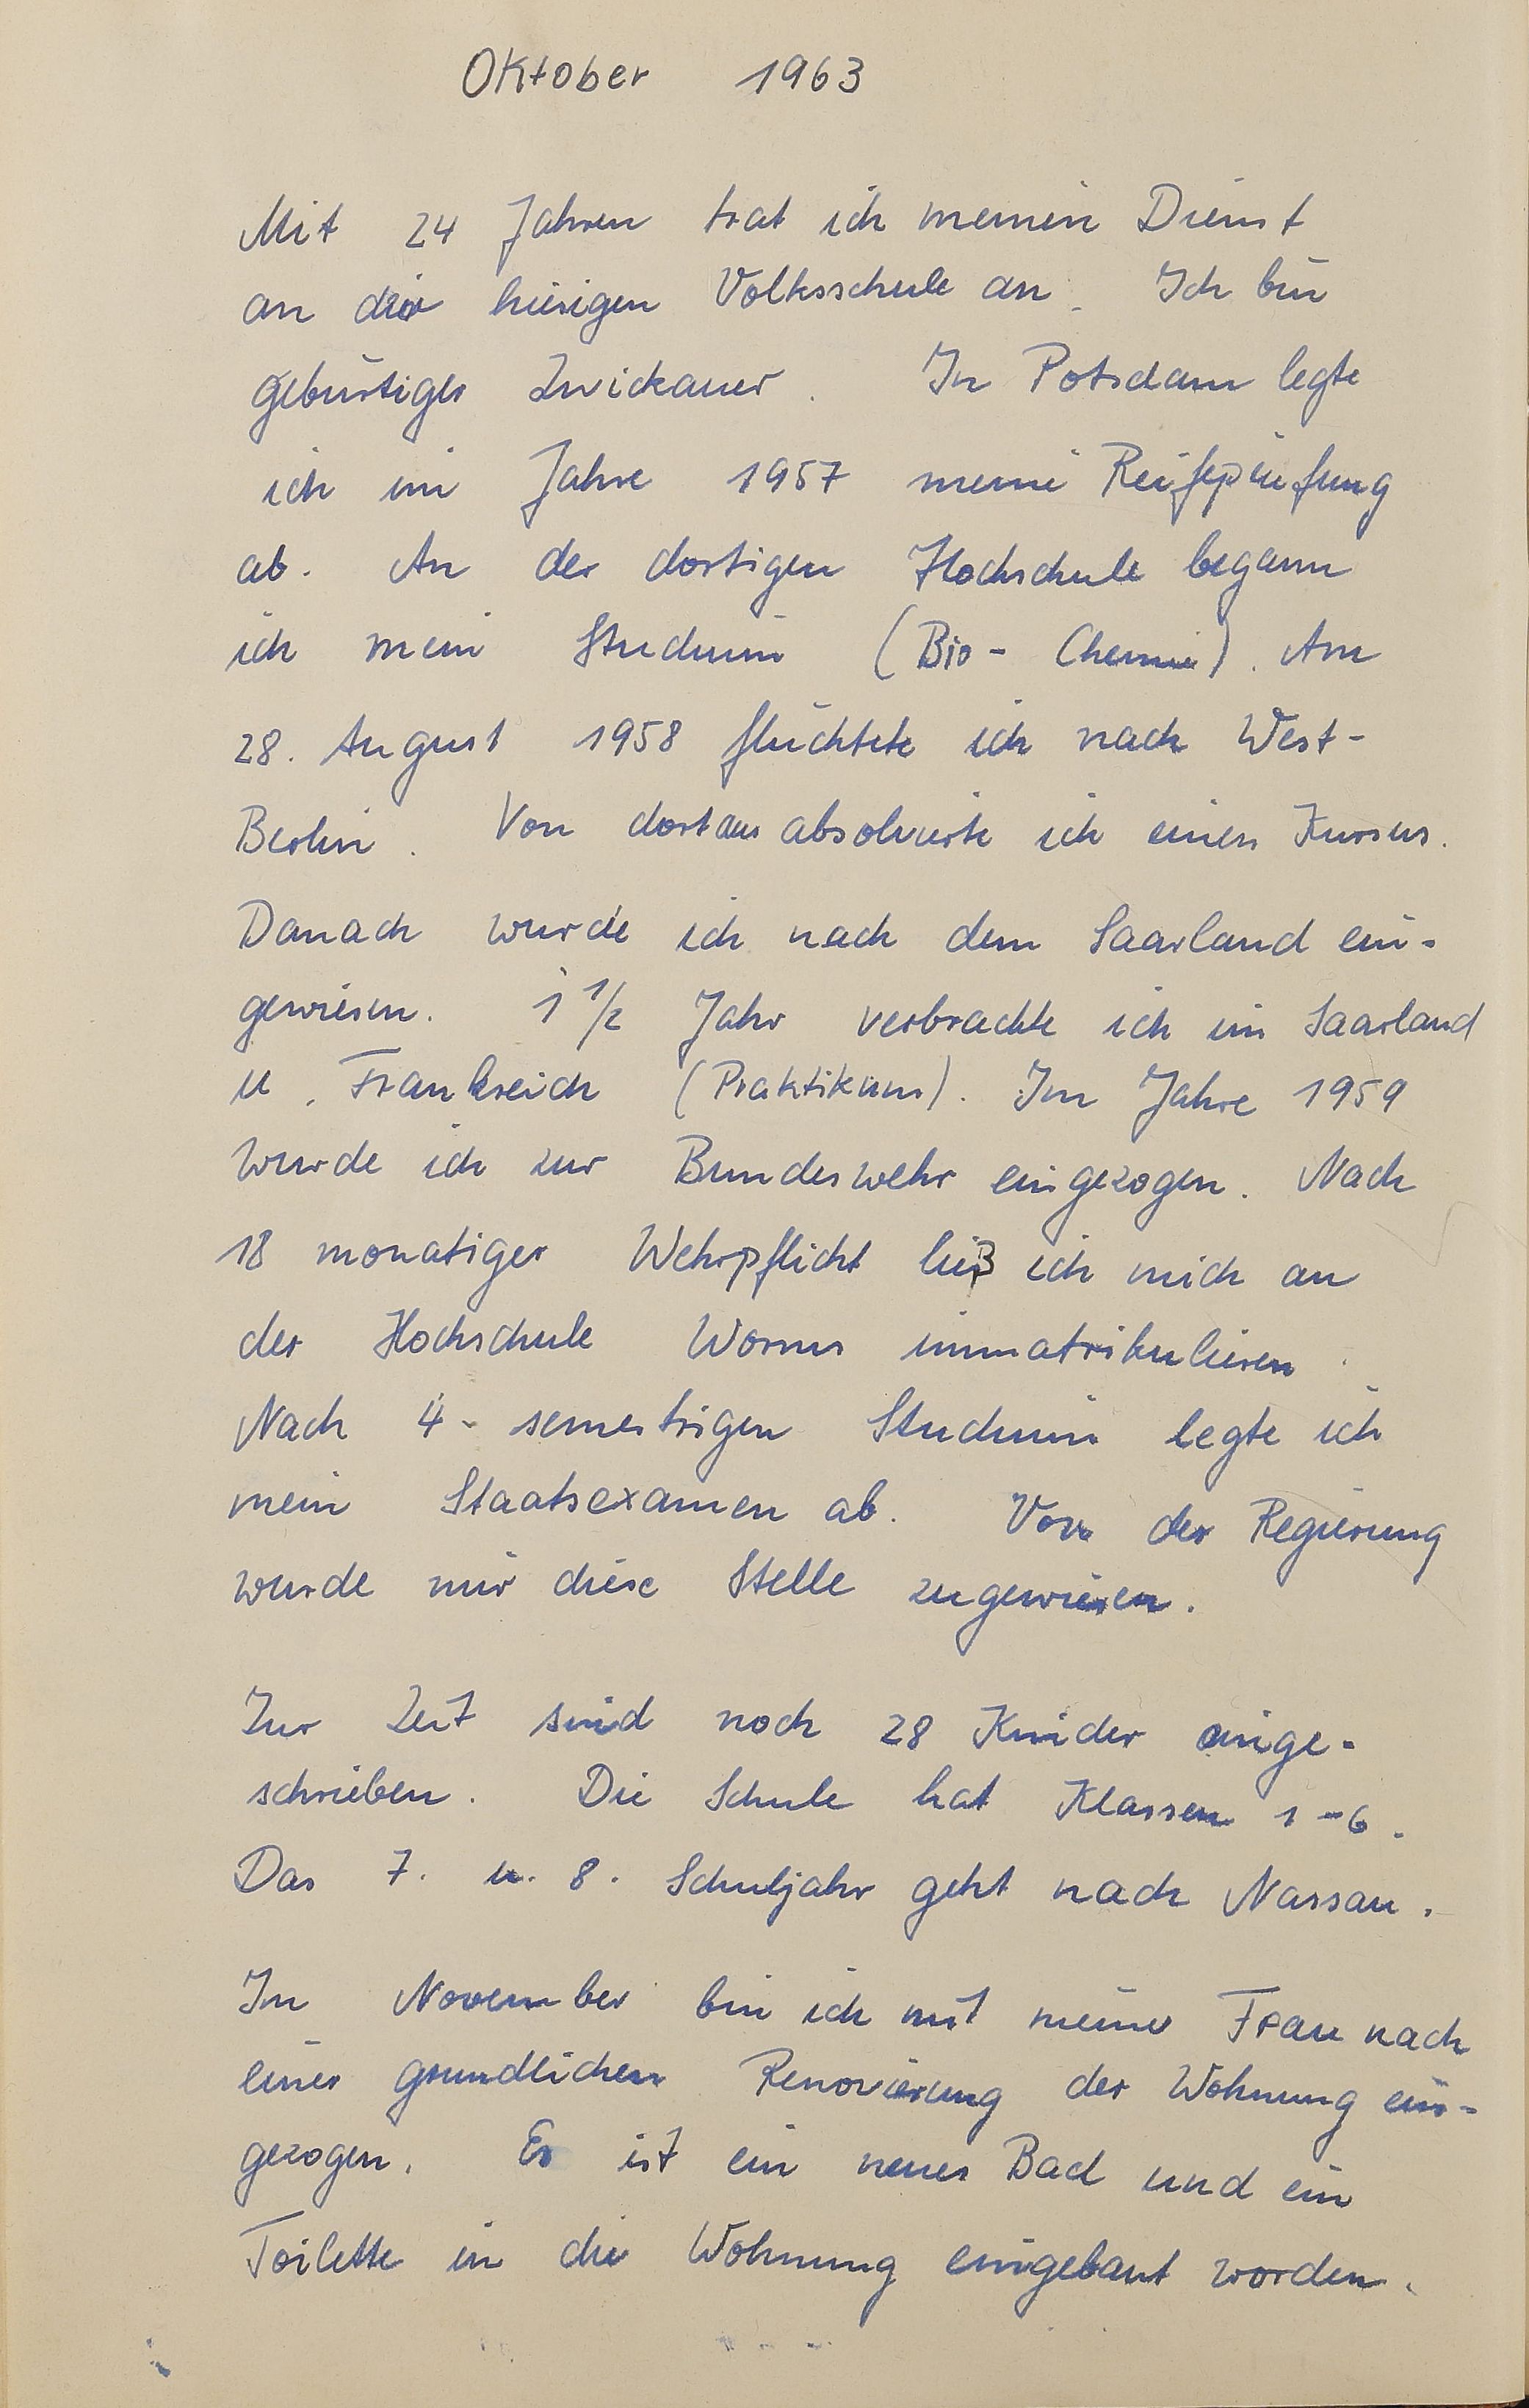 Oktober 1963
Mit 24 Jahren trat ich meinen Dienst
an der hiesigen Volksschule an. Ich bin
gebürtiger Zwickauer. In Potsdam legte
ich im Jahre 1957 meine Reifeprüfung
ab. An der dortigen Hochschule begann
ich mein Studium (Bio- Chemie). Am
28. August 1958 flüchtete ich nach West-
Berlin. Von dort aus absolvierte ich einen Kursus.
Danach wurde ich nach dem Saarland ein-
gewiesen. 1 1/2 Jahr verbrachte ich im Saarland
u. Frankreich (Praktikum). Im Jahre 1959
wurde ich zur Bundeswehr eingezogen. Nach
18 monatiger Wehrpflicht ließ ich mich an
der Hochschule Worms immatrikulieren.
Nach 4-semestrigen Studium legte ich
mein Staatsexamen ab. Von der Regierung
wurde mir diese Stelle zugewiesen.
Zur Zeit sind noch 28 Kinder einge-
schrieben. Die Schule hat Klassen 1-6.
Das 7. u. 8. Schuljahr geht nach Nassau.
Im November bin ich mit meiner Frau nach
einer grundlichen Renovierung der Wohnung ein-
gezogen. Es ist ein neues Bad und ein
Toilette in die Wohnung eingebaut worden.